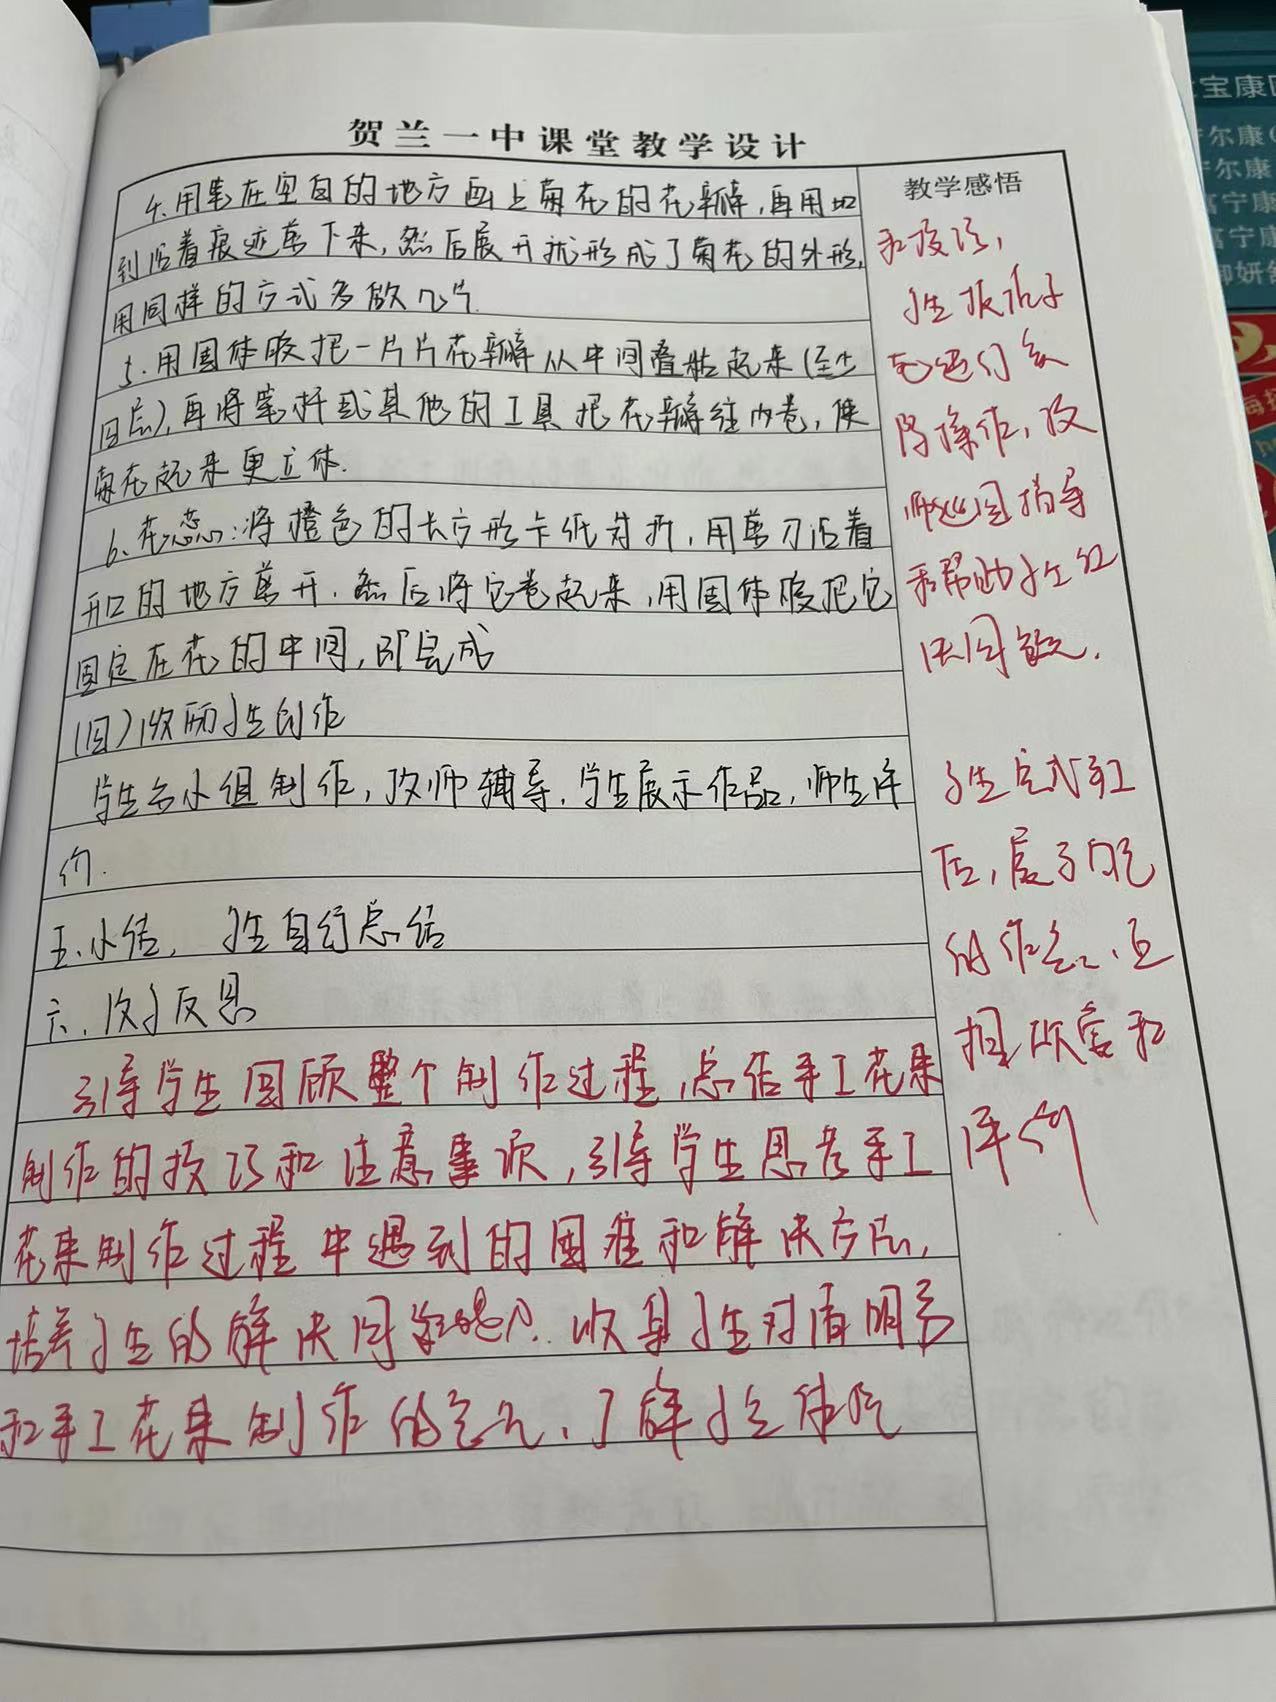 贺兰一中课堂教学设计
4.用笔在空白的地方画上菊花的花瓣,再用
沿着痕迹剪下来,然后展开就形成了菊花的外形,
用同样的方式多做几片.
5.用固体胶把一片片花瓣从中间叠粘起来(至少
四层),再将笔杆或其他的工具把花瓣往内卷,使
菊花起来更立体.
6、花蕊:将橙色的长方形卡纸对折,用剪刀沿着
开口的地方剪开.然后将它卷起来,用固体胶把它
固定在花的中间,即完成
(四)学生创作
学生分小组制作,教师辅导.学生展示作品,师生评
价.
五.小结, 学生自行总结
六.教学反思
引导学生回顾整个制作过程,总结手工花束
制作的技巧和注意事项,引导学生思考手工
花束制作过程中遇到的困难和解决方法,
培养学生的解决问题能力.收集学生对清明节
和手工花束制作的,了解学生体
教学感悟
和技巧,
学生
进行实
际操作,教
师巡回指导
和帮助学生解
决问题.
学生完成手工
后,展示自己
的作品,互
相欣赏和
评价
宝康
尔康
尔康
富宁康
富宁康
御妍舒